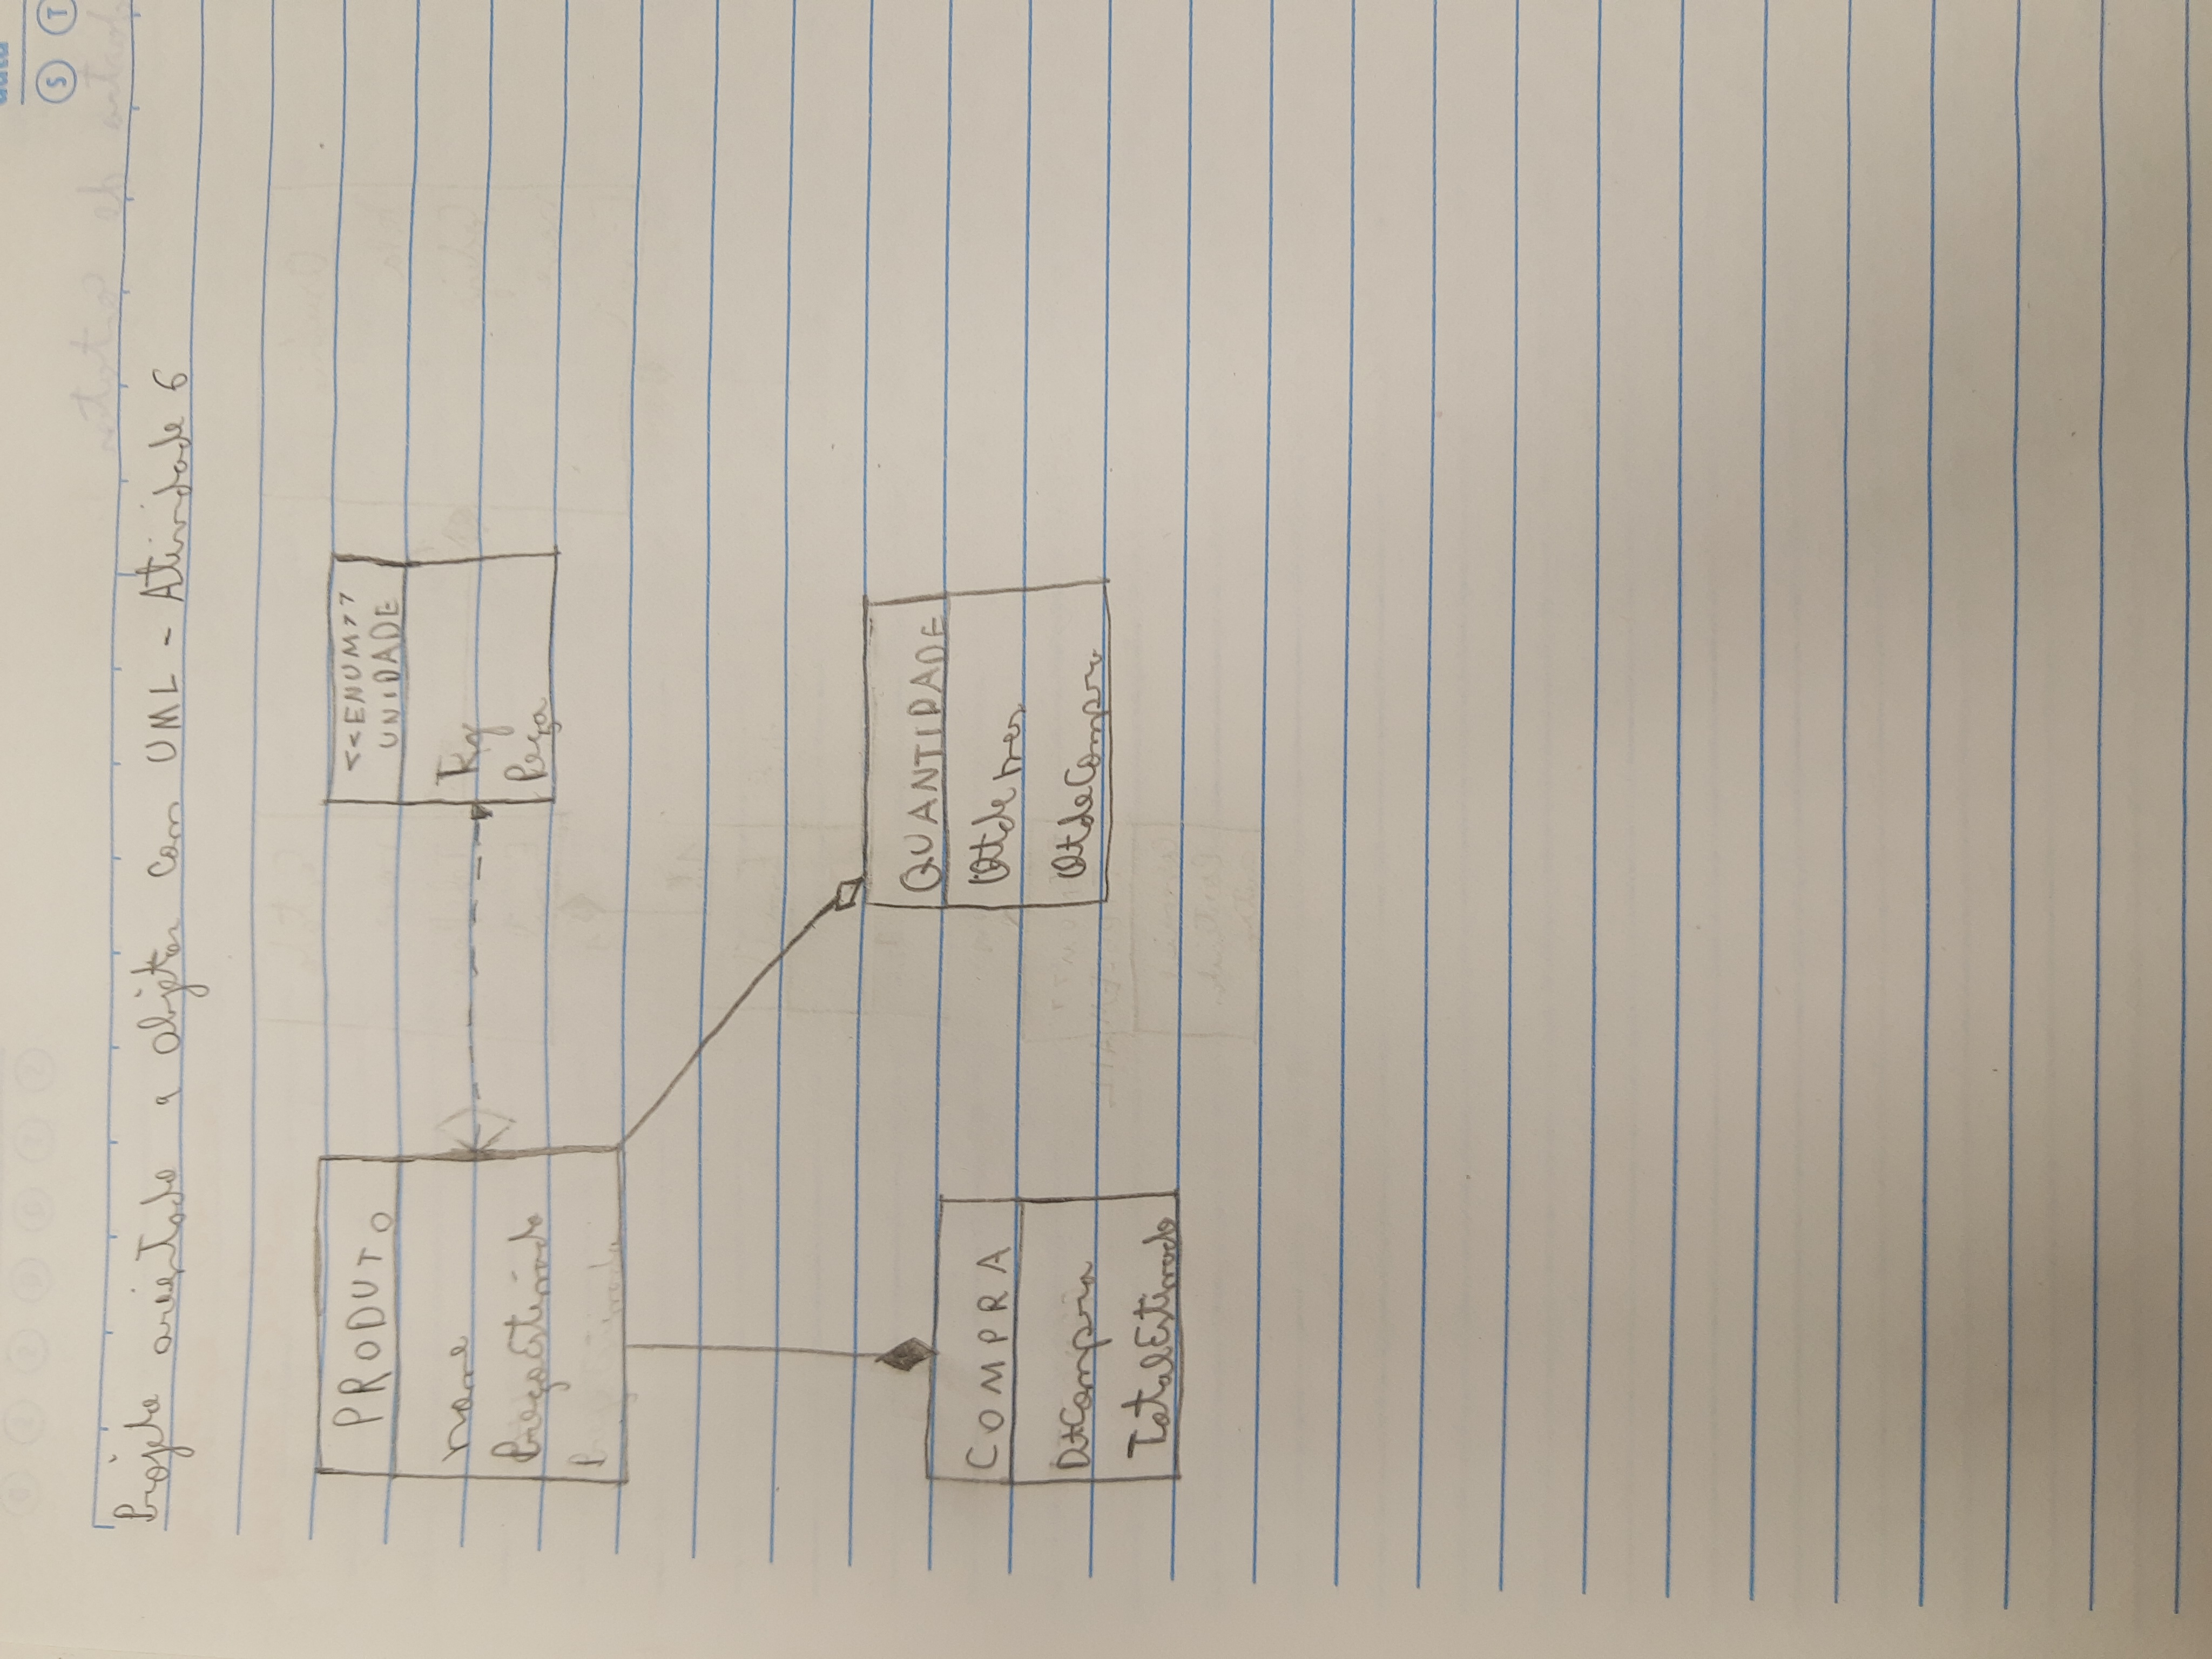 data
S T
Projeto orientado a objetos com UML - Atividade 6
PRODUTO
nome
PreçoEstimado
P
<<ENUM>>
UNIDADE
Kg
Peça
COMPRA
DtCompra
TotalEstimado
QUANTIDADE
Qtde mes
QtdeCompra